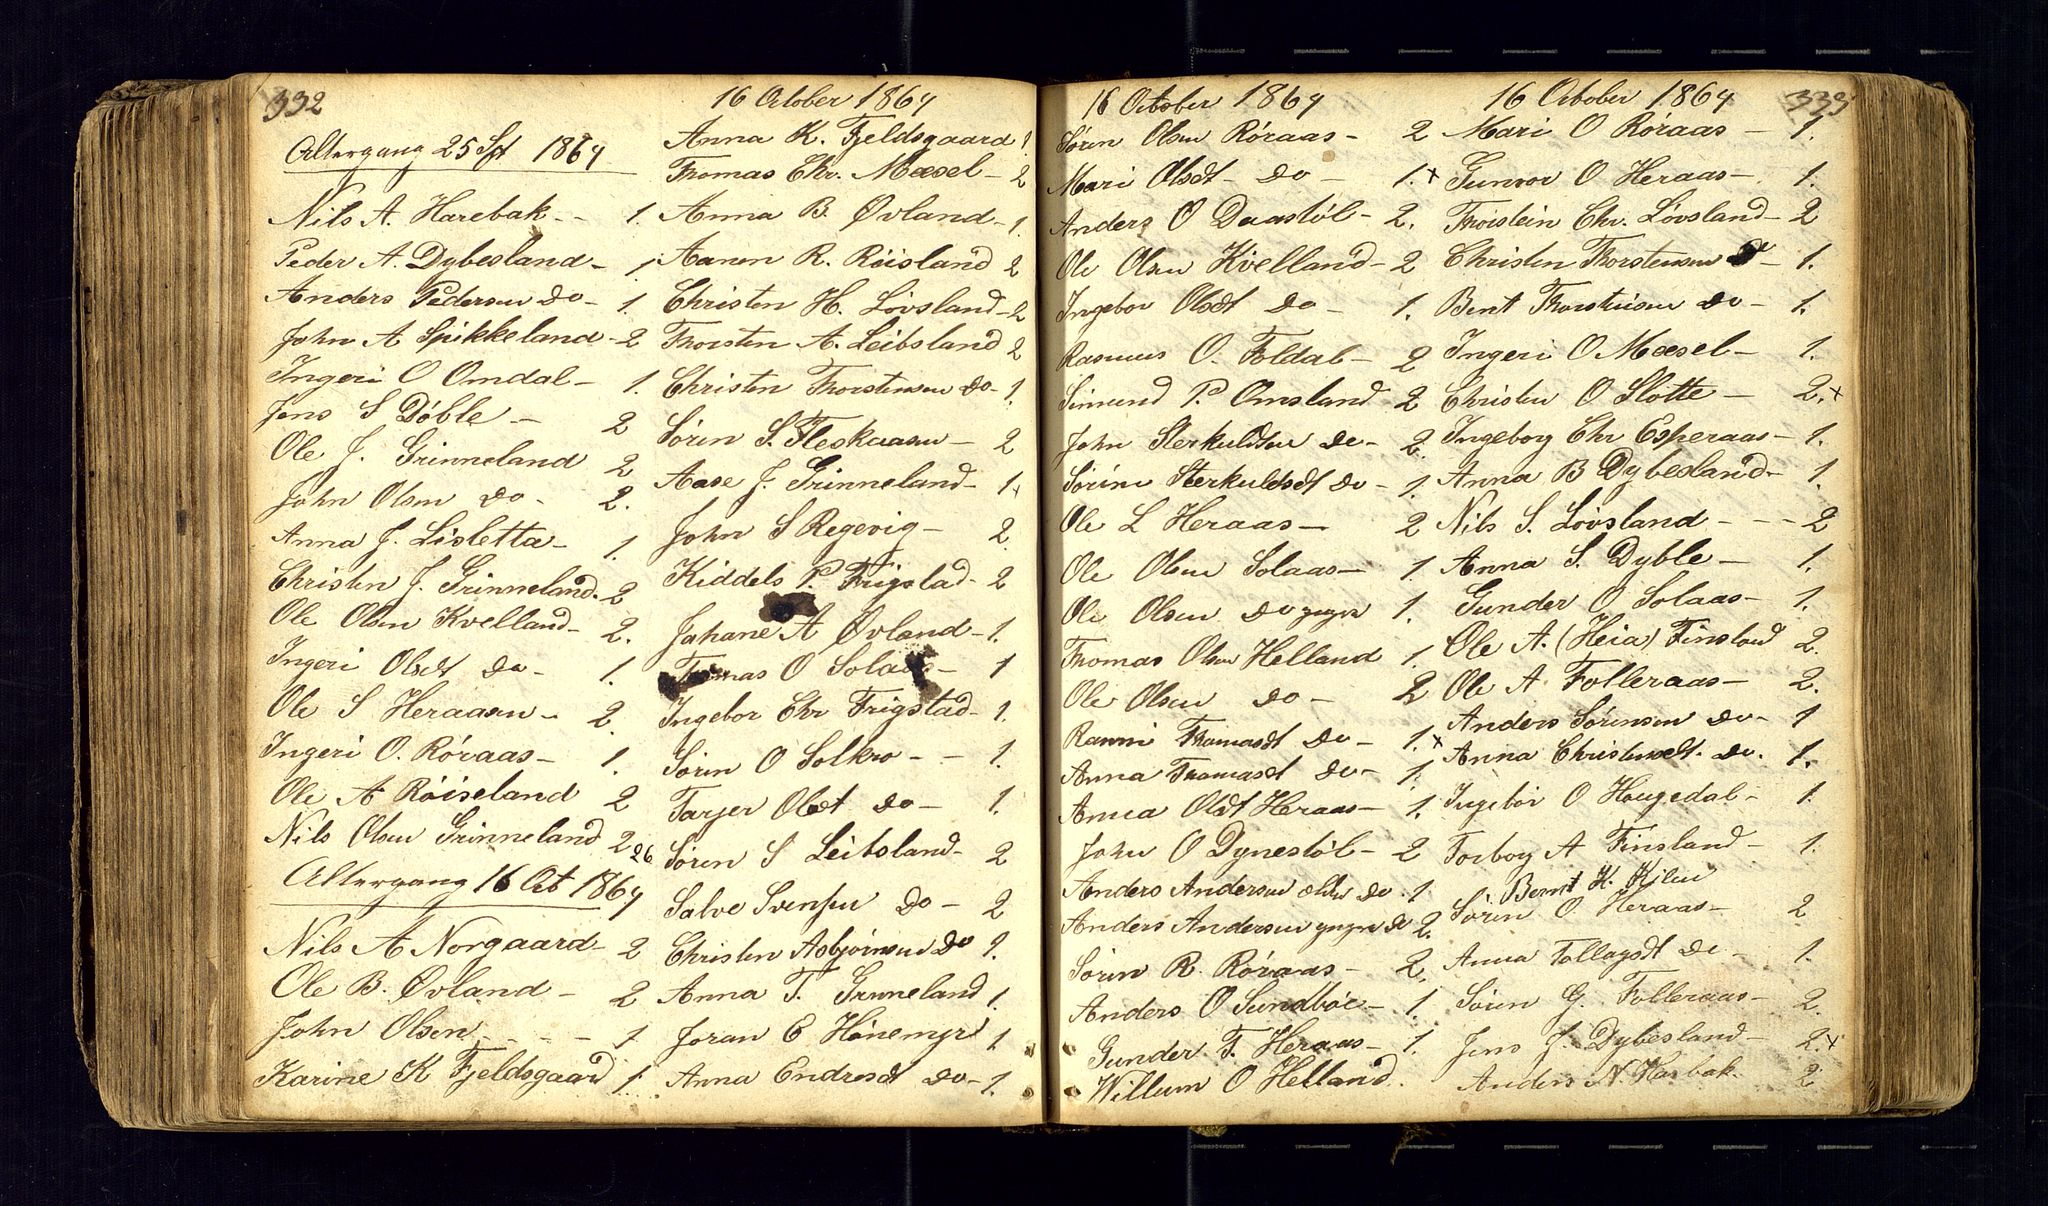 332
Altergang 25 Spt 1864
Nils A. Harebak - - 1.
Peder A. Dybesland - 1.
Anders Pedersen Do - 1.
John A Spikkeland - 2
Ingeri O Omdal - 1.
Jens S Døble - 2
Ole J. Grinneland 2
John Olsen Do - 2.
Anna J. Lisletta - 1.
Christen J. Grinneland. 2
Ole Olsen Kvelland - 2.
Ingeri Olsdt Do - 1.
Ole S Heraasen - 2.
Ingeri O. Røraas - 1.
Ole A Røiseland 2
Nils Olsen Grinneland 2 26
Altergang 16 Oct 1864
Nils A Norgaard - 2
Ole B. Øvland - 2
John Olsen - - - - 1
Karine K Fjeldsgaard 1.
16 October 1864
Anna K. Fjeldsgaard 1.
Thomas Chr. Mæsel - 2
Anna B. Øvland - 1.
Aanen R. Røisland 2
Christen H. Løvsland - 2
Thorsten A. Leibsland 2
Christen Thorstensen Do - 1.
Søren S. Fleskaasen - 2
Aase J. Grinneland - 1 x
John S Regevig - 2.
Kiddels P. Frigstad - 2
Johane A Øvland - 1.
Thomas O Solaas - 1
Ingebor Chr Frigstad - 1.
Søren O Solkro - - 1.
Tarjer Olsdt Do - 1.
Søren S Leibsland - 2
Salve Svensen Do - 2
Christen Asbjørnsen Do 1.
Anna T. Grinneland 1.
Joran E Hønemyr 1
Anna Endresdt Do - 1.
16 October 1864
Søren Olsen Røraas - 2
Mari Olsdt - Do - 1. x
Anders O Daastøl - 2.
Ole Olsen Kvelland - 2
Ingebor Olsdt Do - 1.
Rasmus O. Foldal - 2
Simund P. Omsland 2
John Sterkuldsen Do - 2.
Sørine Sterkuldsdt Do - 1.
Ole L Heraas - 2
Ole Olsen Solaas - 1
Ole Olsen Do yngre 1.
Thomas Olsen Helland 1.
Ole Olsen Do - 2
Ranni Thomasdt Do - 1. x
Anna Thomasdt Do - 1.
Anna Olsdt Heraas - 1.
John O Dynestøl - 2
Anders Andersen ældre Do. 1
Anders Andersen yngre Do 2.
Søren R. Røraas - 2.
Anders O Sundbøe - 1.
Gunder T. Heraas - 1.
Willum O Helland.
16 October 1864 333
Mari O Røraas - 1.
Gunvor O Heraas - 1.
Thorstein Chr. Løvsland - 2
Christen Thorstensen Do - 1.
Bent Thorstensen Do - 1.
Ingeri O Mæsel - 1.
Christen O Slotte - 2. x
Ingeborg Chr Esperaas - 1.
Anna B Dybesland - 1.
Nils S. Løvsland - - - 2
Anna S. Dyble - 1.
Gunder O Solaas - 1.
Ole A. (Heia) Finsland 2.
Ole A Folleraas - 2.
Anders Sørensen Do - 1
Anna Christensdt. Do. 1.
Ingebor O Hougedal - 1.
Torborg A Finsland - 1.
Bernt K. Kilen
Søren O Heraas - 2
Anna Tollagsdt Do - 1.
Søren G. Folleraas - 2.
Jens J. Dybesland - 2. x
Anders N. Harbak 2